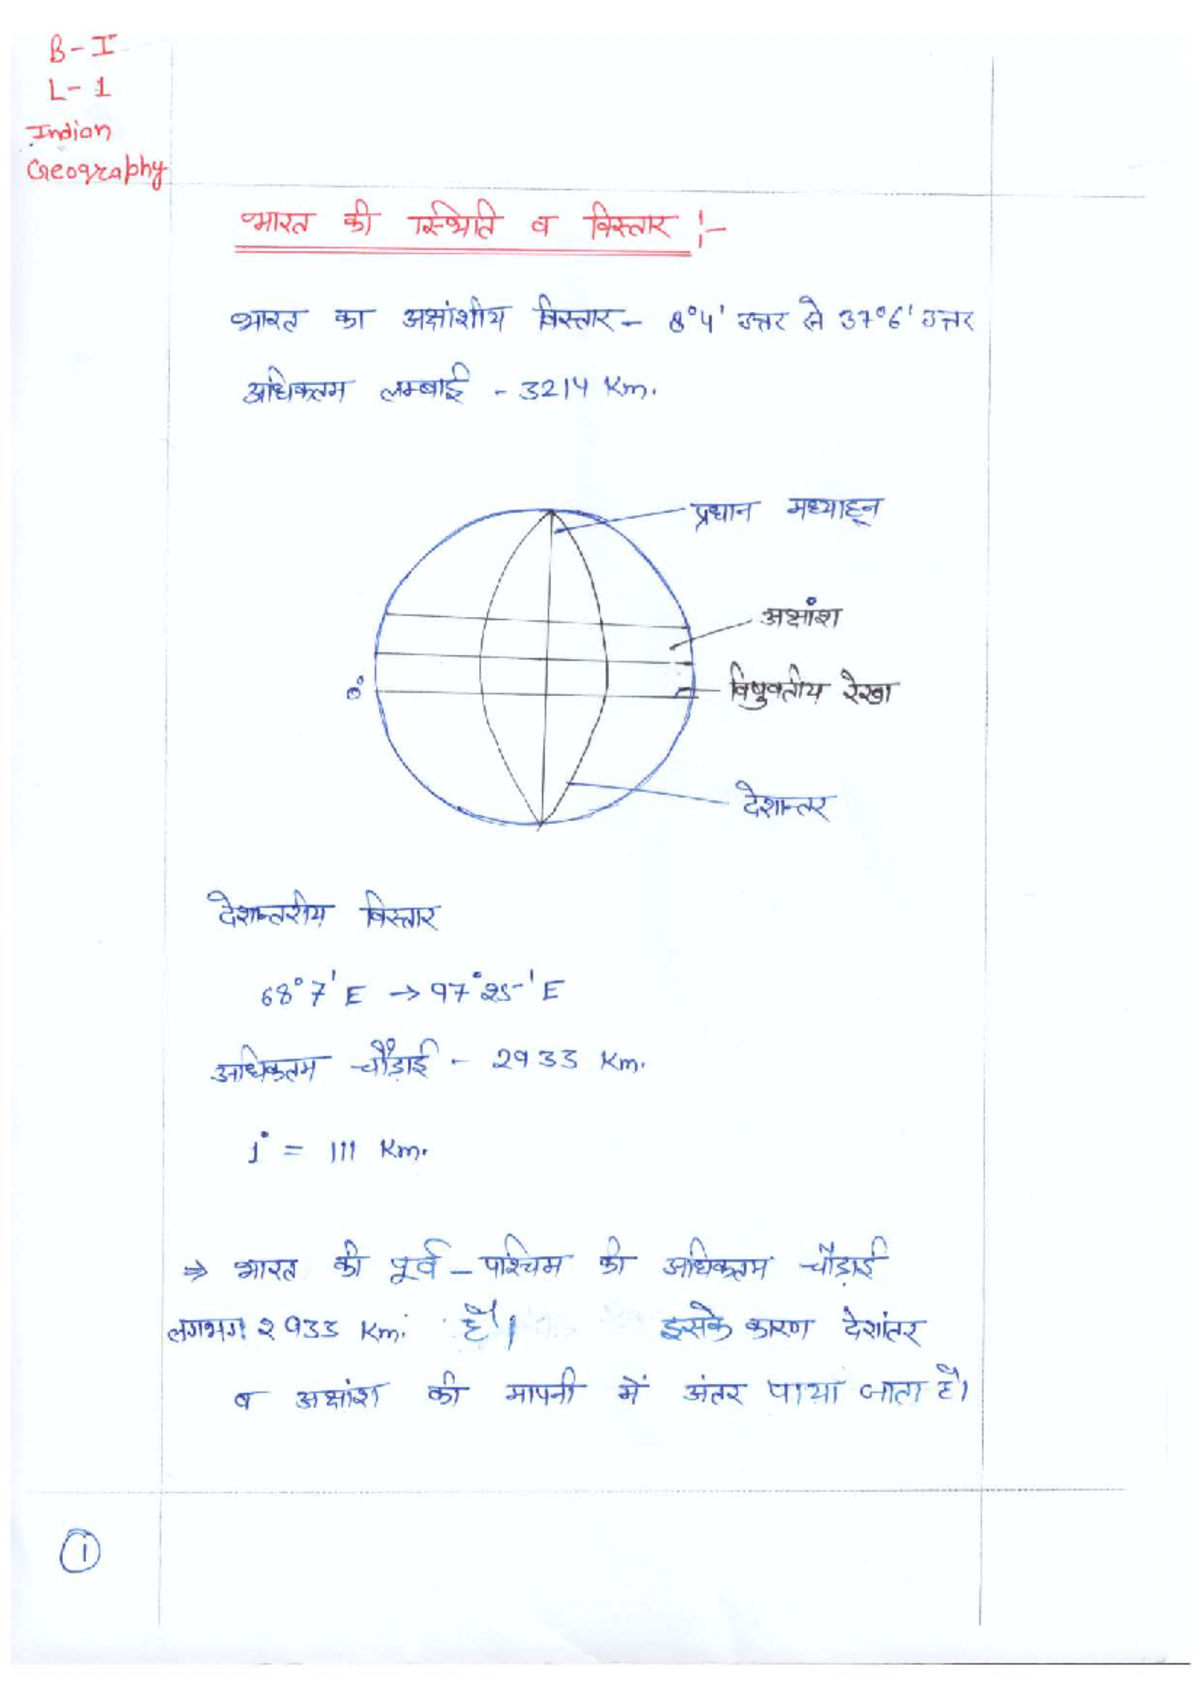 B-I
L-1
Indian
Geography
भारत की स्थिति व विस्तार :-
भारत का अक्षांशीय विस्तार - 8°4' उत्तर से 37°6' उत्तर
अधिकतम लम्बाई - 3214 Km.
प्रधान मध्याह्न
अक्षांश
0°
विषुवतीय रेखा
देशान्तर
देशान्तरीय विस्तार
68°7' E → 97°25' E
अधिकतम चौड़ाई - 2933 Km.
1° = 111 Km.
⇒ भारत की पूर्व - पश्चिम की अधिकतम चौड़ाई
लगभग 2933 Km. है। इसके कारण देशांतर
व अक्षांश की मापनी में अंतर पाया जाता है।
1